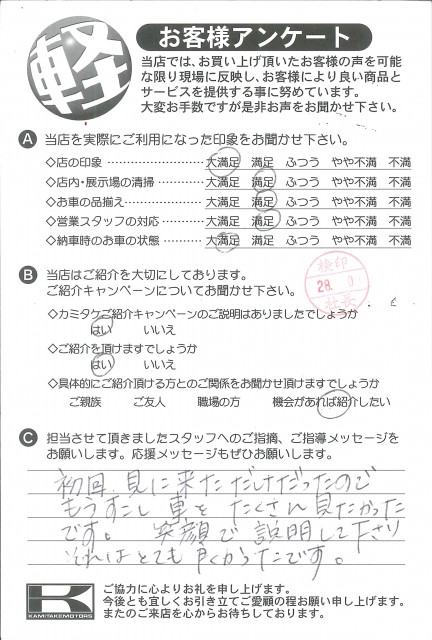 軽
お客様アンケート
当店では、お買い上げ頂いたお客様の声を可能
な限り現場に反映し、お客様により良い商品と
サービスを提供する事に努めています。
大変お手数ですが是非お声をお聞かせ下さい。
A 当店を実際にご利用になった印象をお聞かせ下さい。
◇店の印象 ………………… 大満足 満足 ふつう やや不満 不満
◇店内・展示場の清掃 ………… 大満足 満足 ふつう やや不満 不満
◇お車の品揃え ……………… 大満足 満足 ふつう やや不満 不満
◇営業スタッフの対応 ………… 大満足 満足 ふつう やや不満 不満
◇納車時のお車の状態 ………… 大満足 満足 ふつう やや不満 不満
B 当店はご紹介を大切にしております。
ご紹介キャンペーンについてお聞かせ下さい。
検印
28.
社長
◇カミタケご紹介キャンペーンのご説明はありましたでしょうか
はい いいえ
◇ご紹介を頂けますでしょうか
はい いいえ
◇具体的にご紹介頂ける方とのご関係をお聞かせ頂けますでしょうか
ご親族 ご友人 職場の方 機会があれば紹介したい
C 担当させて頂きましたスタッフへのご指摘、ご指導メッセージを
お願いします。応援メッセージもぜひお願いします。
初回、見に来ただけだったので
もうすこし車をたくさん見たかった
です。 笑顔で説明して下さり
それはとても良かったです。
K
KAMITAKEMOTORS
ご協力に心よりお礼を申し上げます。
今後とも宜しくお引き立てご愛顧の程お願い申し上げます。
またのご来店を心からお待ちしております。